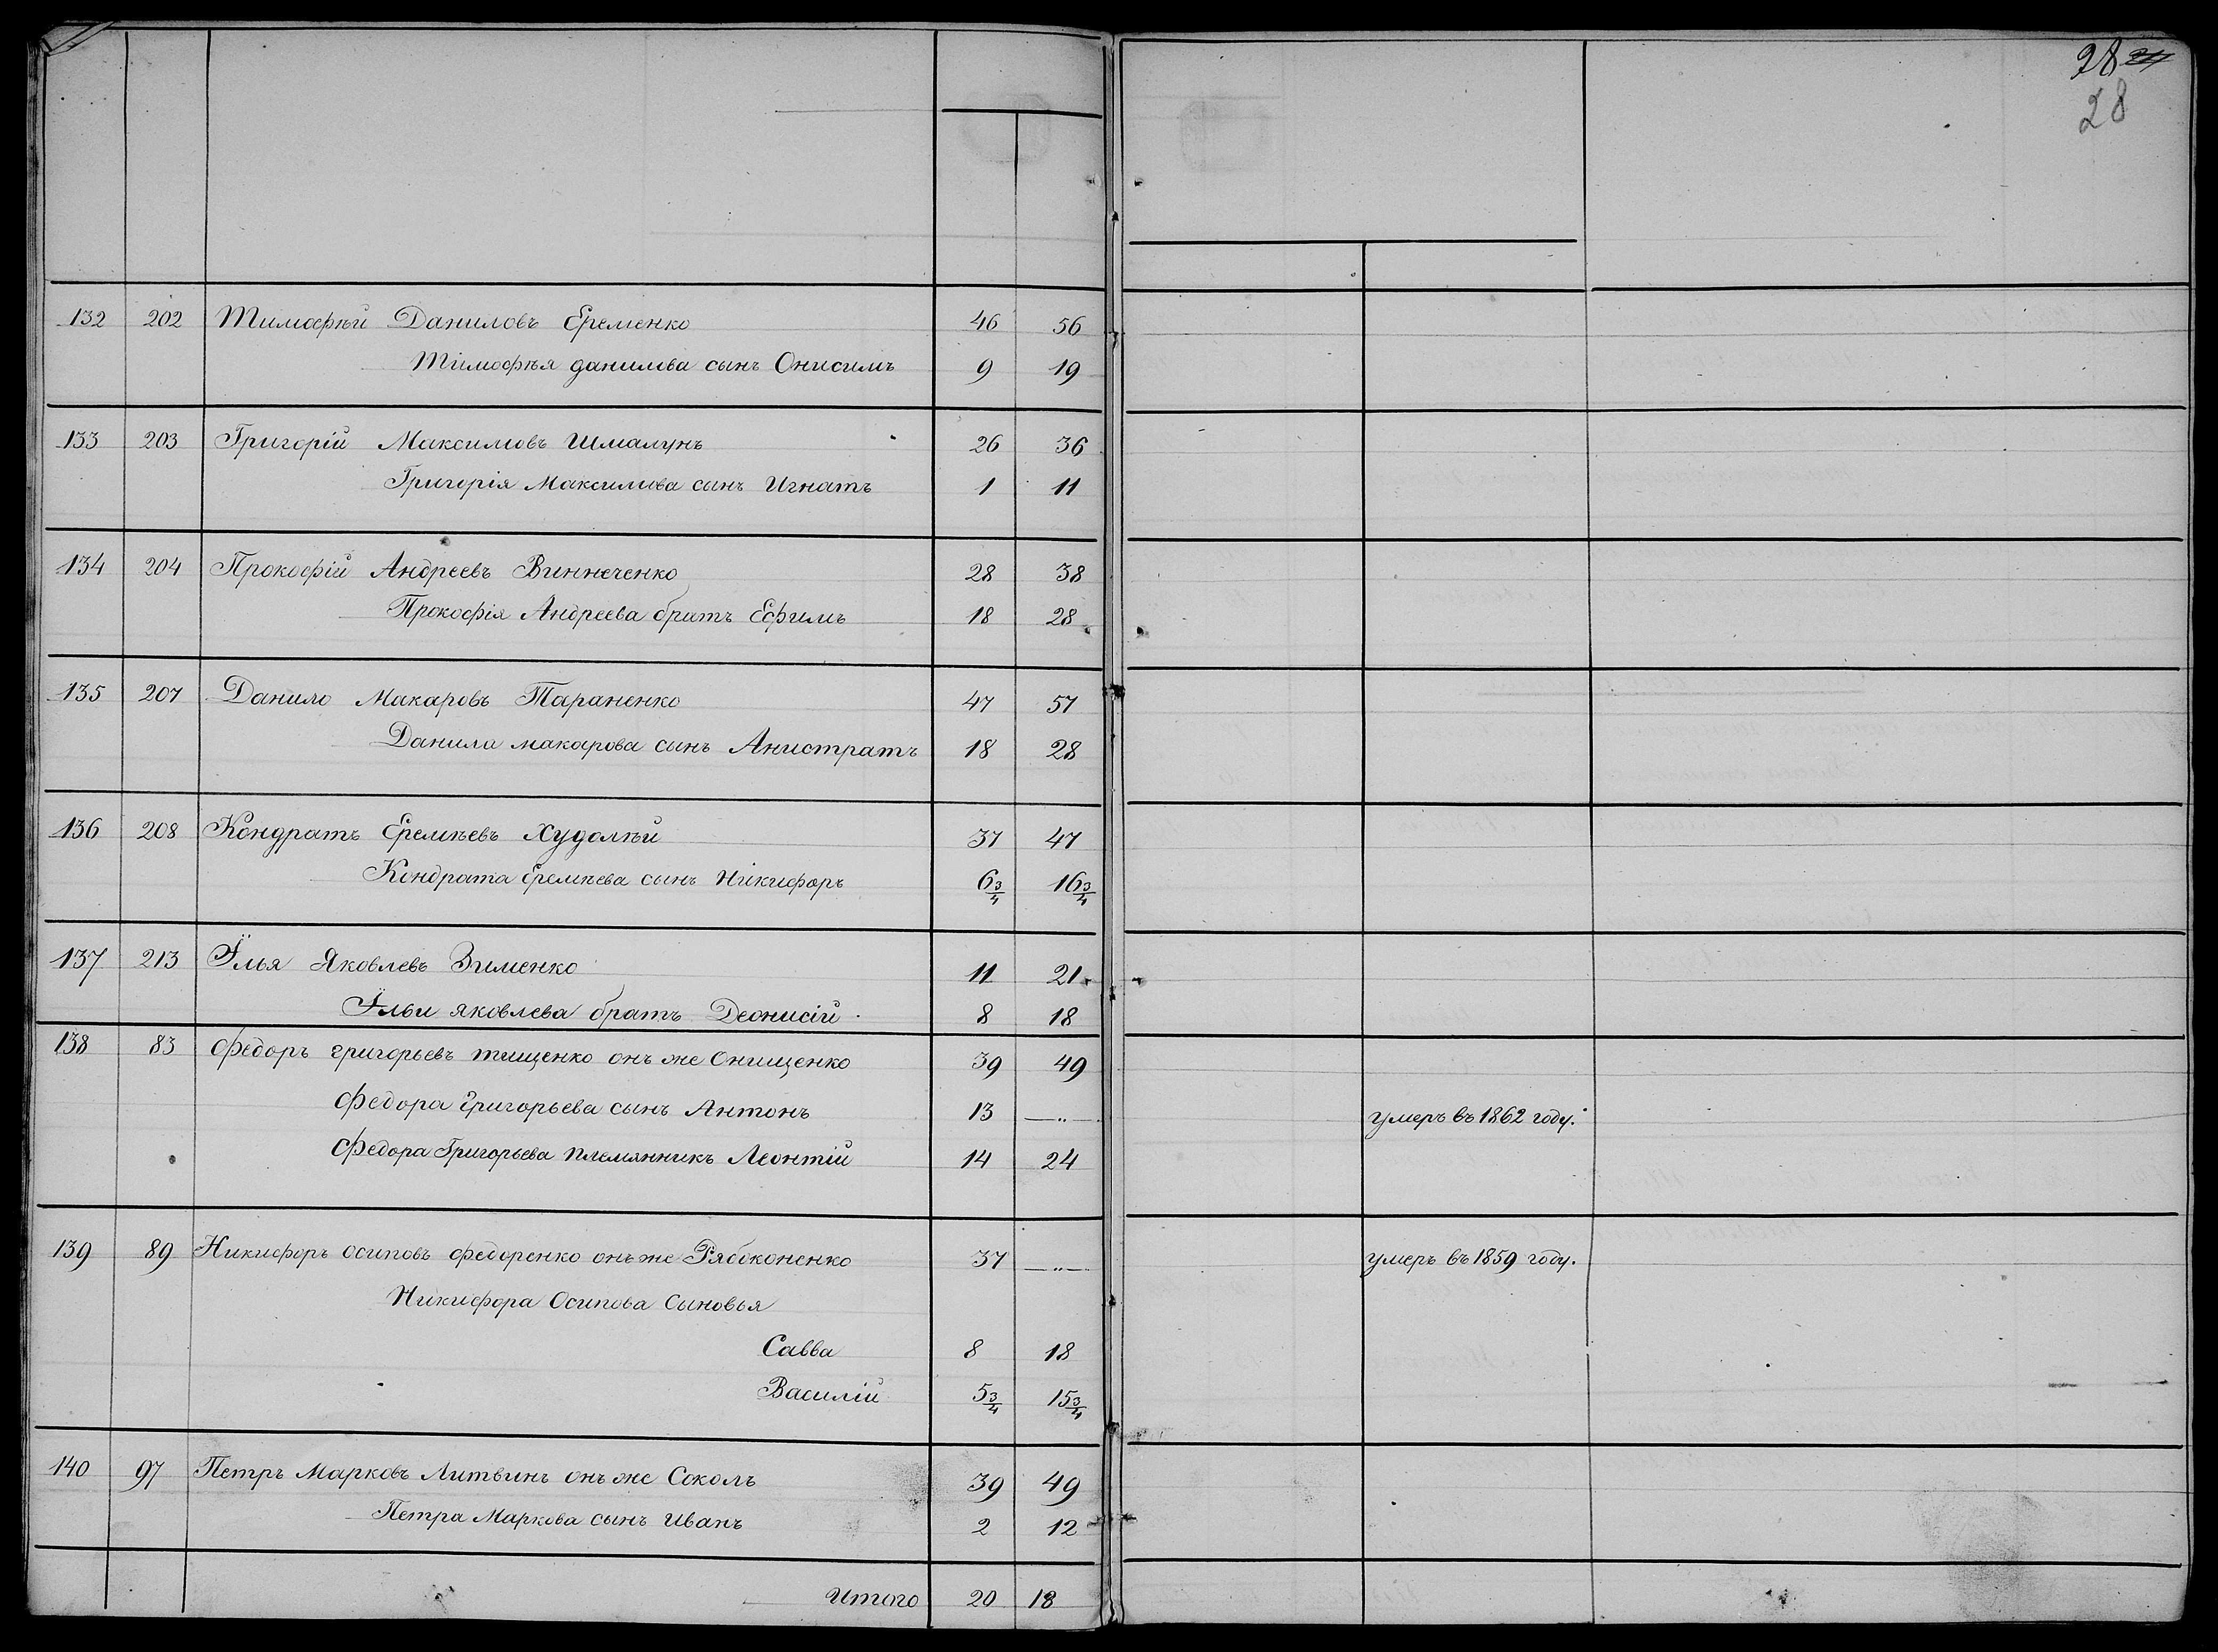 28 21
28
132 202 Тимофѣй Даниловъ Еременко 46 56
Тимофѣя данилова сынъ Онисимъ 9 19
133 203 Григорій Максимовъ Шмалунъ 26 36
Григорія Максимова сынъ Игнатъ 1 11
134 204 Прокофій Андреевъ Винниченко 28 38
Прокофія Андреева братъ Ефимъ 18 28
135 207 Данило Макаровъ Тараненко 47 57
Данила макарова сынъ Анистратъ 18 28
136 208 Кондратъ Еремѣевъ Худолѣй 37 47
Кондрата Еремѣева сынъ Никифоръ 6 3/4 16 3/4
137 213 Илья Яковлевъ Зименко 11 21
Ильи яковлева братъ Деонисій 8 18
138 83 Федоръ григорьевъ тищенко онъ же Онищенко 39 49
Федора григорьева сынъ Антонъ 13 —„— умеръ въ 1862 году.
Федора Григорьева племянникъ Леонтій 14 24
139 89 Никифоръ осиповъ федоренко онъ же Рябоконенко 37 —„— умеръ въ 1859 году.
Никифора Осипова Сыновья
Савва 8 18
Василій 5 3/4 15 3/4
140 97 Петръ Марковъ Литвинъ онъ же Соколъ 39 49
Петра Маркова сынъ Иванъ 2 12
Итого 20 18